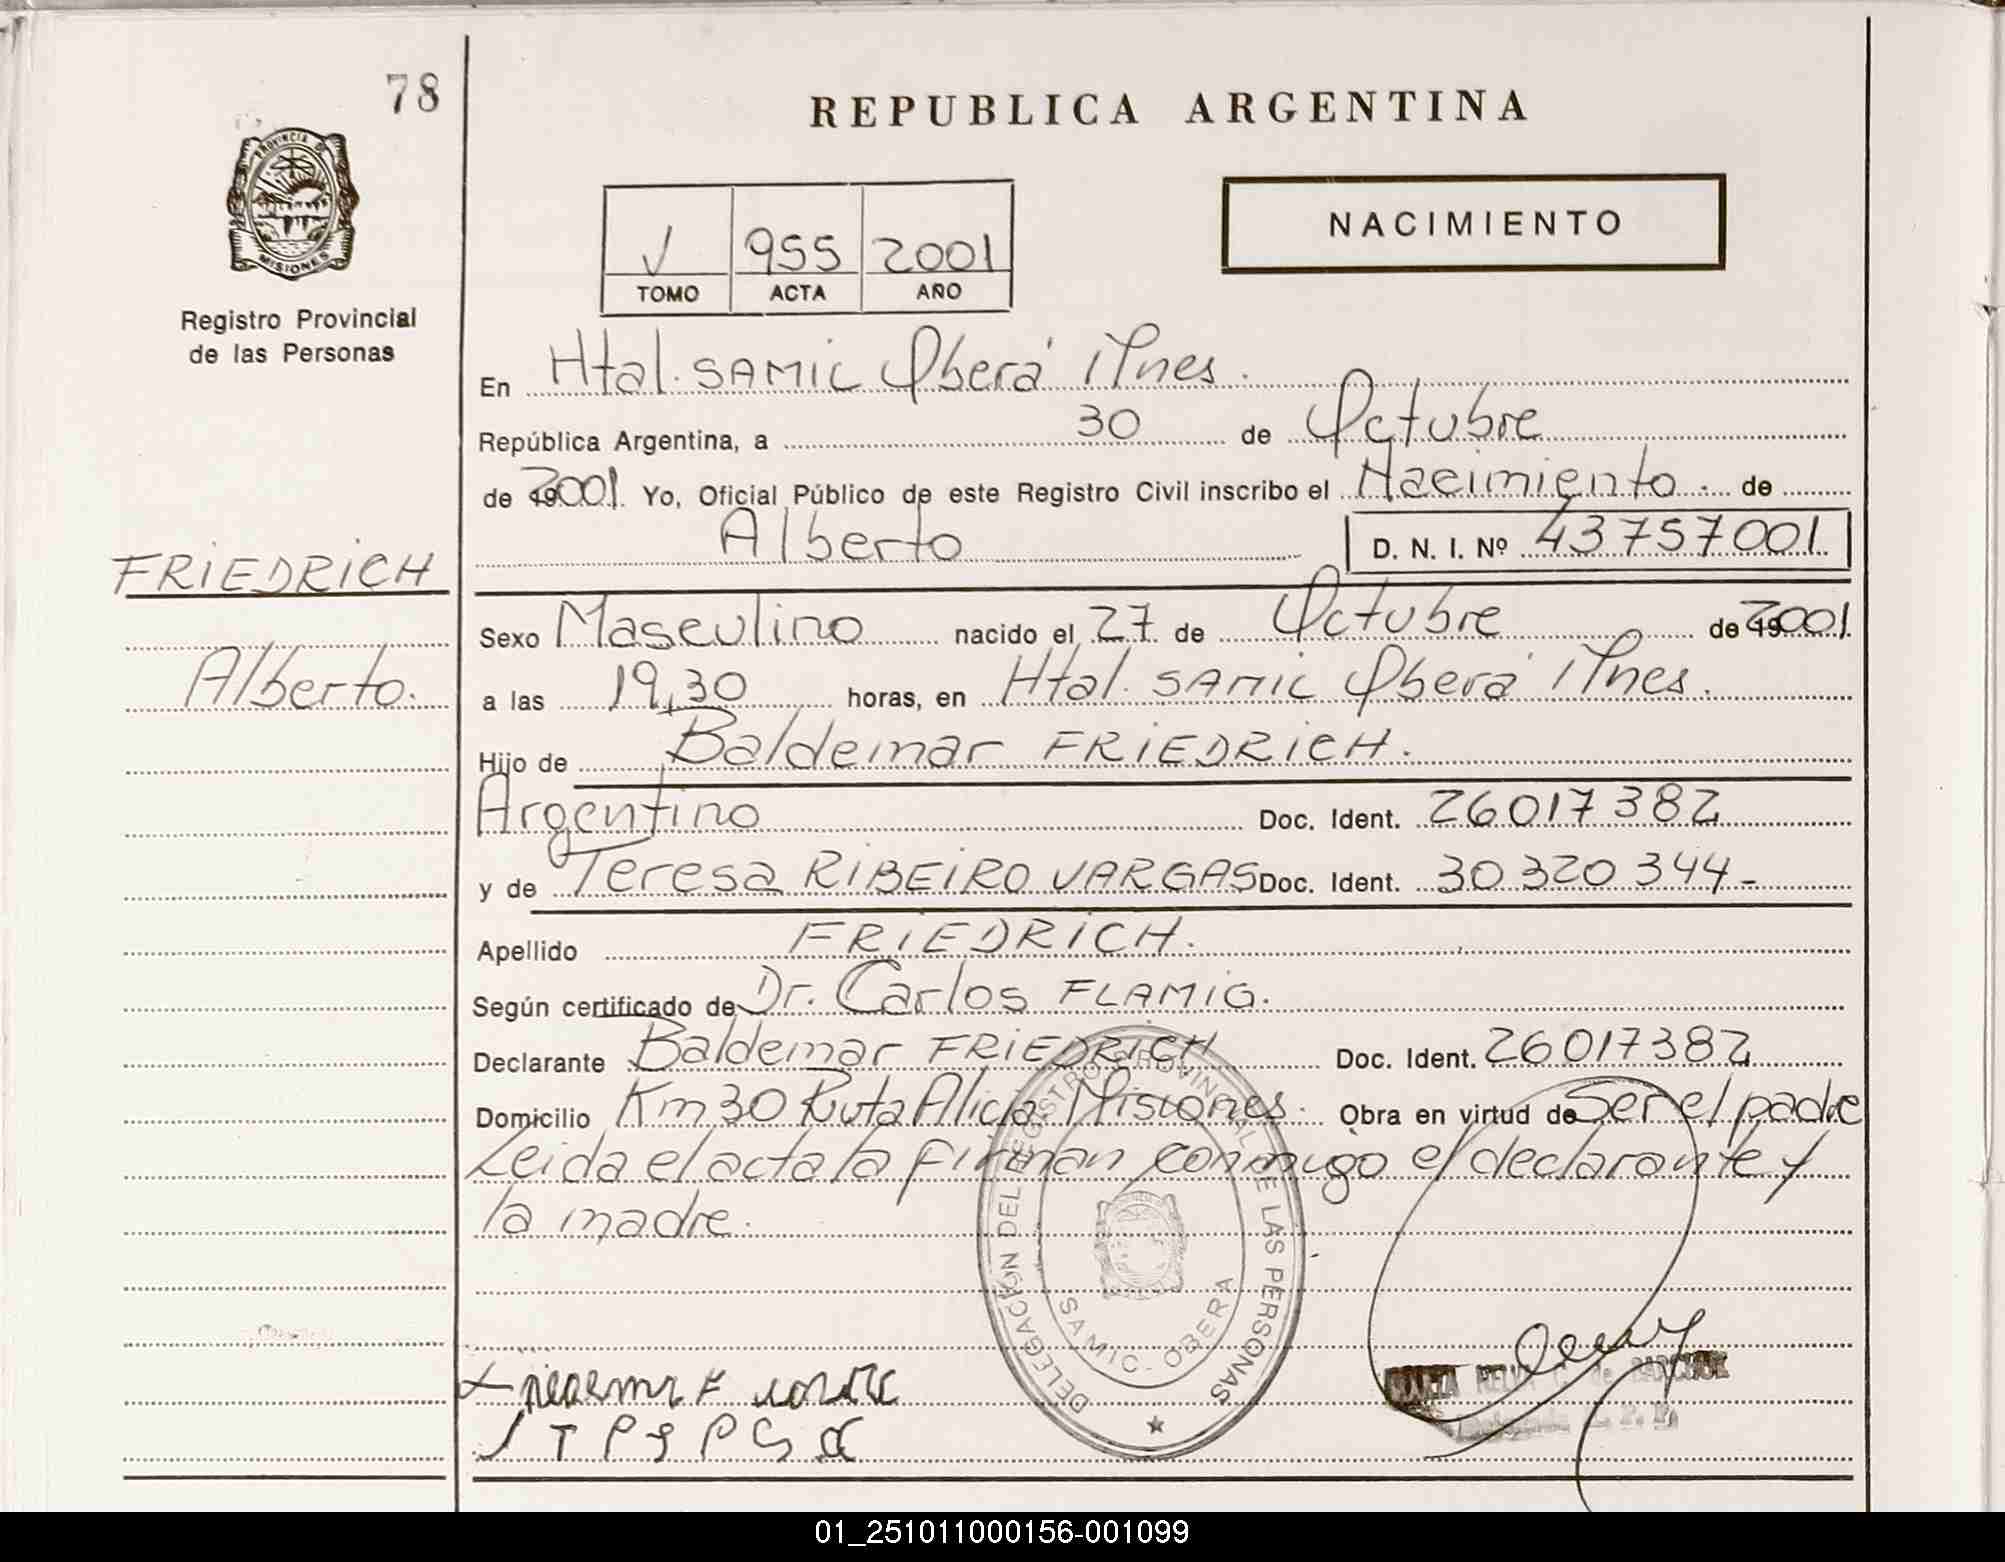 78
PROVINCIA DE
MISIONES
Registro Provincial
de las Personas
FRIEDRICH
Alberto.
REPUBLICA ARGENTINA
NACIMIENTO
955 2001
TOMO ACTA AÑO
En Htal. SAMIC Oberá Mnes.
República Argentina, a 30 de Octubre
de 2001. Yo, Oficial Público de este Registro Civil inscribo el Nacimiento. de
Alberto D. N. I. Nº 43757001
Sexo Masculino nacido el 27 de Octubre de 2001.
a las 19,30 horas, en Htal. SAMIC Oberá Mnes.
Hijo de Baldemar FRIEDRICH.
Argentino Doc. Ident. 26017382
y de Teresa RIBEIRO VARGAS Doc. Ident. 30320344-
Apellido FRIEDRICH.
Según certificado de Dr. Carlos FLAMIG.
Declarante Baldemar FRIEDRICH Doc. Ident. 26017382
Domicilio Km 30 Ruta Alicia Misiones. Obra en virtud de Ser el padre
Leida el acta la firman conmigo el declarante y
la madre.
DELEGACIÓN DEL REGISTRO PROVINCIAL DE LAS PERSONAS
SAMIC - OBERA
01_251011000156-001099